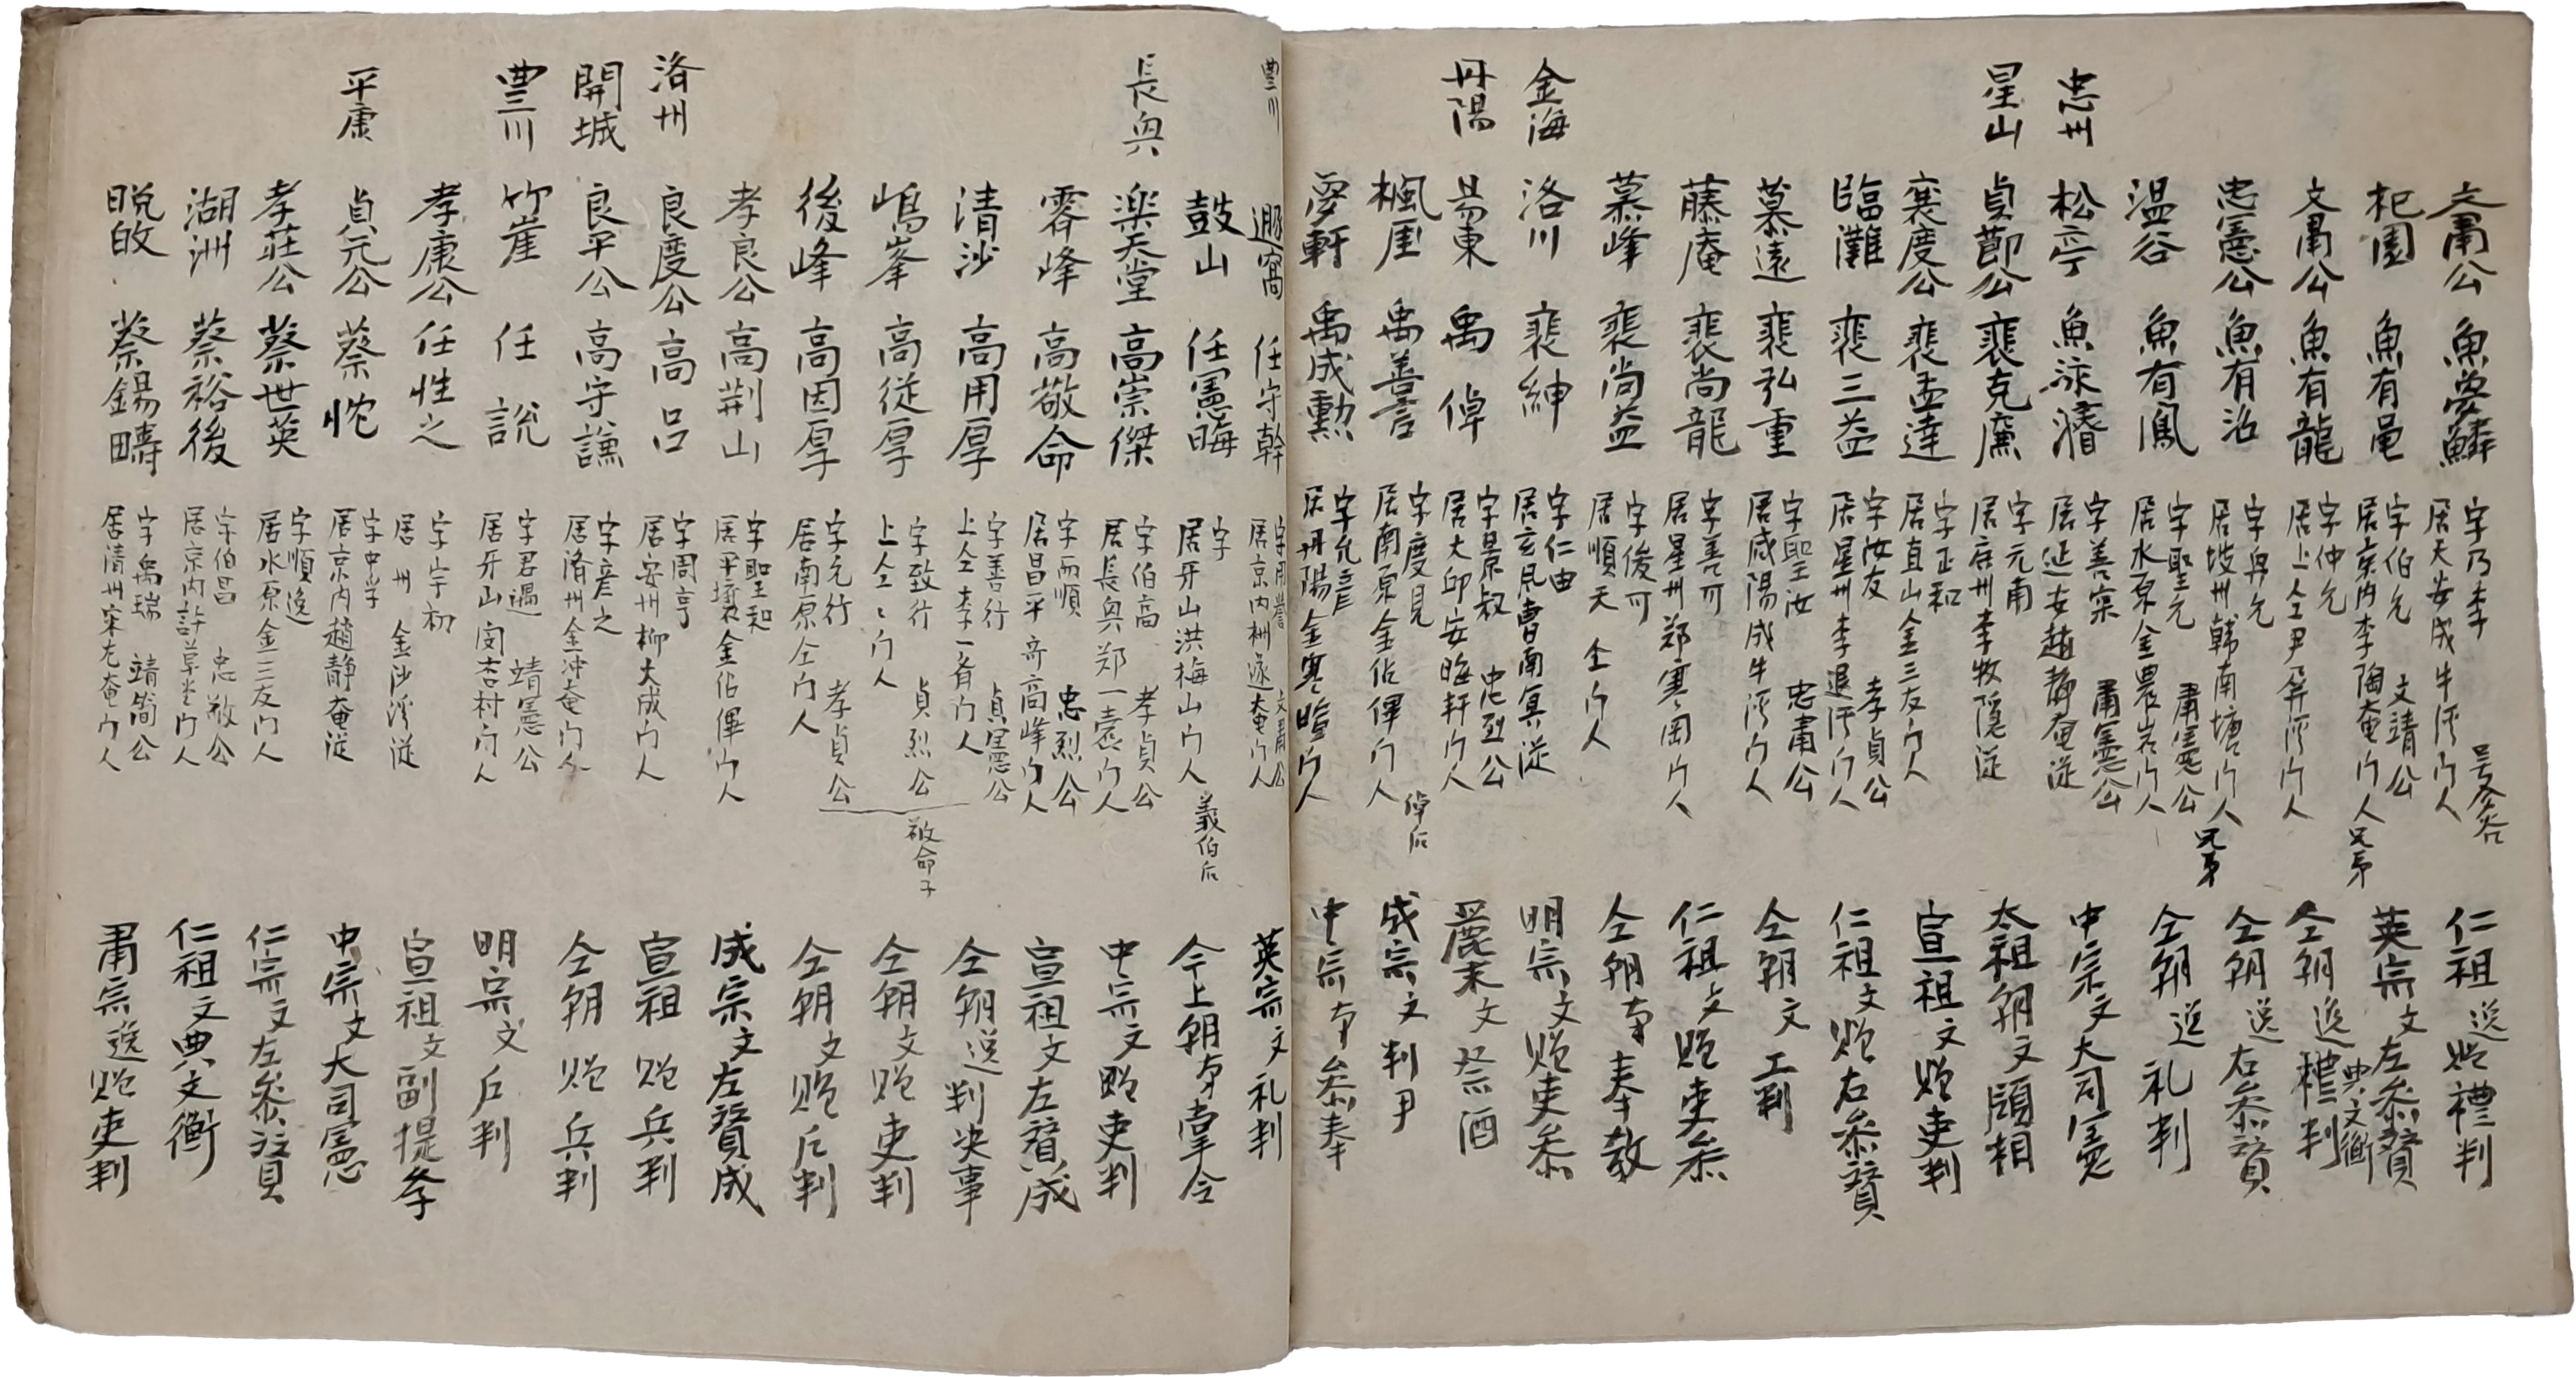 文肅公 魚夢鱗 字乃季 居天安成牛溪门人 号晩谷 仁祖逸贈禮判
杞園 魚有鳳 字伯允 文靖公 居京内李陶菴门人 兄弟 英宗文左參贊典文衡
文肅公 魚有龍 字仲允 居上仝尹屛溪门人 仝朝逸禮判
忠憲公 魚有沼 字舜允 居坡州韓南塘门人 兄弟 仝朝逸右參贊
温谷 魚有鳳 字聖允 肅憲公 居水原金農岩门人 仝朝逸礼判
忠州 松亭 魚泳濬 字善深 肅憲公 居延安趙靜奄從 中宗文大司憲
星山 貞節公 裵克廉 字元南 居庄州李牧隱從 太祖朝文領相
襄度公 裵孟達 字正和 居直山金三友门人 宣祖文贈吏判
臨灘 裵三益 字汝友 孝貞公 居星州李退溪门人 仁祖文贈右參贊
慕遠 裵弘重 字聖汝 忠肅公 居咸陽成牛溪门人 仝朝文工判
藤庵 裵尙龍 字善可 居星州郑寒岡门人 仁祖文贈吏參
慕峰 裵尙益 字俊可 居順天仝门人 仝朝有奉敎
金海 洛川 裵紳 字仁由 居玄风曺南冥從 明宗文贈吏參
丹陽 易東 禹倬 字景叔 忠烈公 居大邱安晦軒门人 麗末文祭酒
楓厓 禹善言 字度見 居南原金佔俾门人 倬后 成宗文判尹
夢軒 禹成勲 字允彦 居丹陽金寒暄门人 中宗有參奉
豊川 遯窩 任守幹 字用譽 文肅公 居京内朴遂菴门人 英宗文礼判
鼓山 任憲晦 字 居牙山洪梅山门人 義伯后 今上朝有掌令
長興 楽天堂 高崇傑 字伯高 孝貞公 居長興郑一蠹门人 中宗文贈吏判
霽峰 高敬命 字而順 忠烈公 居昌平奇高峰门人 宣祖文左贊成
清沙 高用厚 字善行 貞憲公 上仝李一斉门人 仝朝逸判决事
嶋峯 高從厚 字致行 貞烈公 上仝仝门人 敬命子 仝朝文贈吏判
後峰 高因厚 字允行 孝貞公 居南原仝门人 仝朝文贈戶判
孝良公 高荆山 字聖和 居平壤金佔俾门人 成宗文左贊成
洛州 良度公 高呂 字周亨 居安州柳大成门人 宣祖贈兵判
開城 良平公 高守謙 字彦之 居洛州金冲庵门人 仝朝贈兵判
豊川 竹崖 任說 字君遇 靖憲公 居牙山闵杏村门人 明宗文戶判
孝康公 任性之 字宇初 居 州金沙溪從 宣祖文副提孝
平康 貞元公 蔡忱 字中孚 居京内趙静奄從 中宗文大司憲
孝莊公 蔡世英 字順逸 居水原金三友门人 仁宗文左參贊
湖洲 蔡裕後 字伯昌 忠敬公 居京内許草堂门人 仁祖文典文衡
晩攸 蔡錫疇 字禹瑞 靖簡公 居清州宋尤奄门人 肅宗逸贈吏判